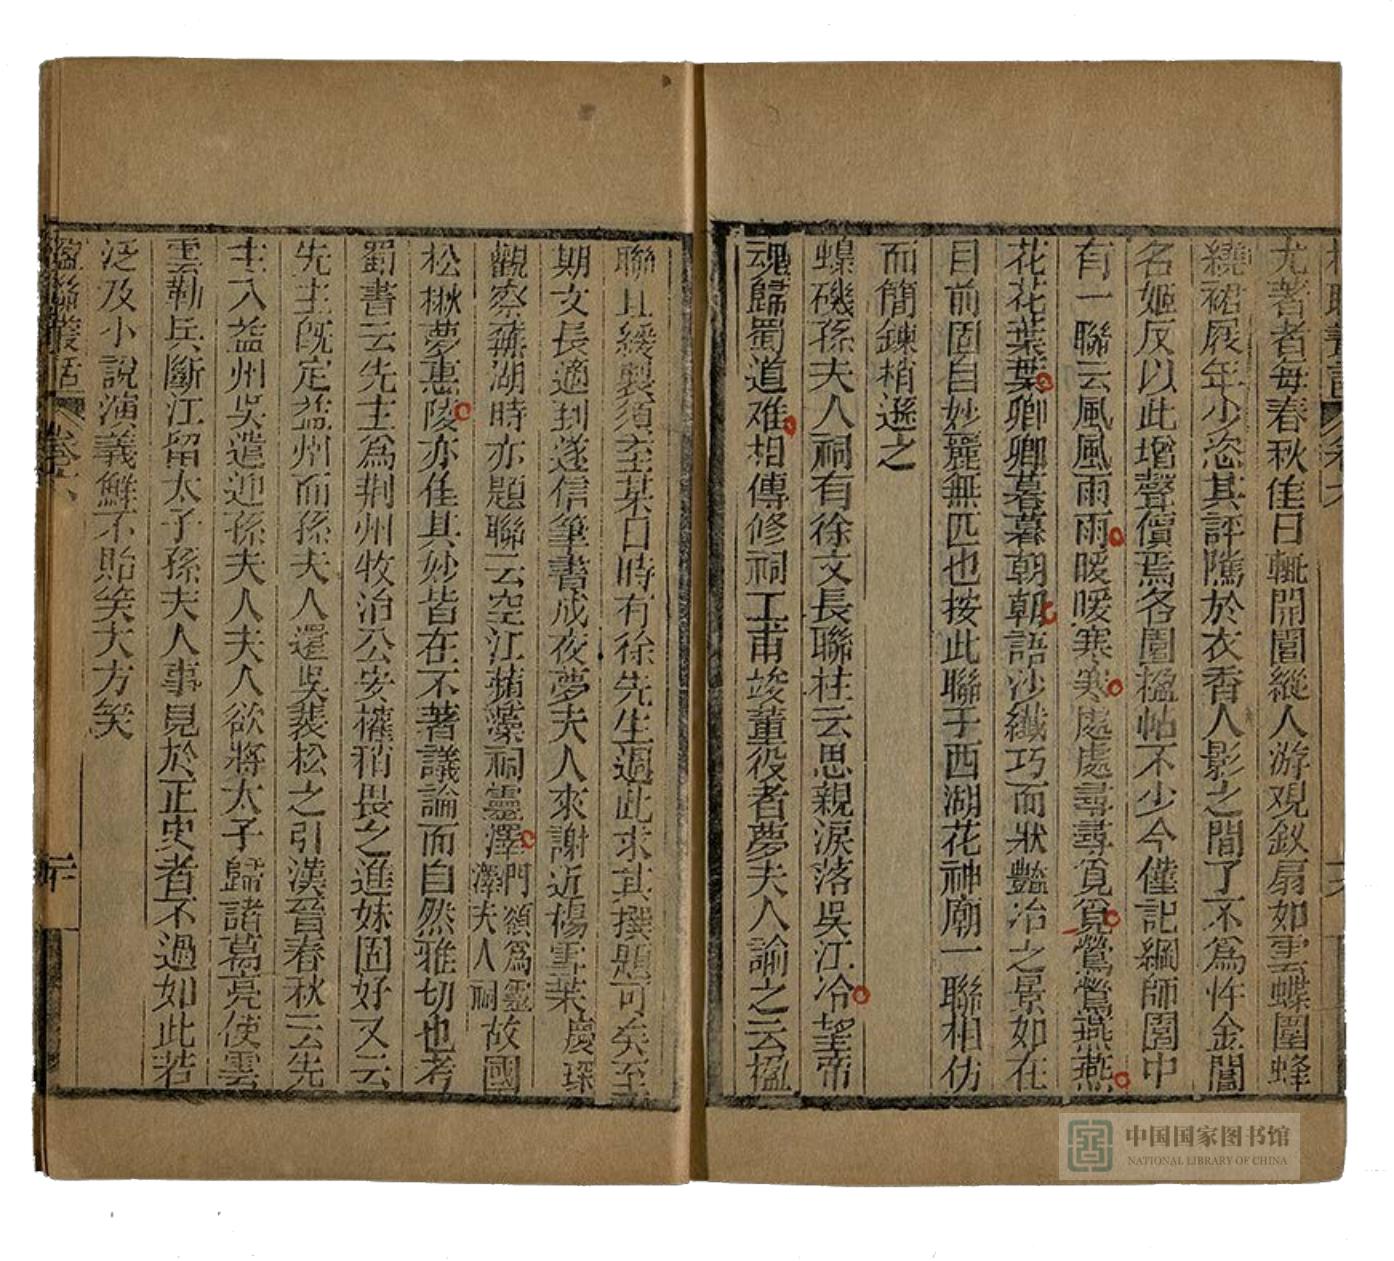 尤著者每春秋佳日輒開園縱人游观釵扇如雲蝶圍蜂
繞裙屐年少恣其評騭於衣香人影之間了不為忤金閶
名姬反以此增聲價焉各園楹帖不少今僅記網師園中
有一聯云風風雨雨暖暖寒寒處處尋尋覓覓鶯鶯燕燕
花花葉葉卿卿暮暮朝朝語涉纖巧而狀豔冶之景如在
目前固自妙麗無匹也按此聯于西湖花神廟一聯相仿
而簡鍊稍遜之
蟂磯孫夫人祠有徐文長聯柱云思親淚落吳江冷望帝
魂歸蜀道难相傳修祠工甫竣董役者夢夫人諭之云楹
聯且緩製須至某日時有徐先生過此求其撰題可矣至
期文長適到遂信筆書成夜夢夫人來謝近楊雪茮慶琛
觀察蕪湖時亦題聯云空江蘋藻祠靈澤門額爲靈澤夫人祠故國
松楸夢惠陵亦佳其妙皆在不著議論而自然雅切也考
蜀書云先主爲荆州牧治公安權稍畏之進妹固好又云
先主既定益州而孫夫人還吳裴松之引漢晉春秋云先
主入益州吳遣迎孫夫人夫人欲將太子歸諸葛亮使雲
雲勒兵斷江留太子孫夫人事見於正史者不過如此若
泛及小說演義鮮不貽笑大方矣
楹聯叢話 卷六 二十